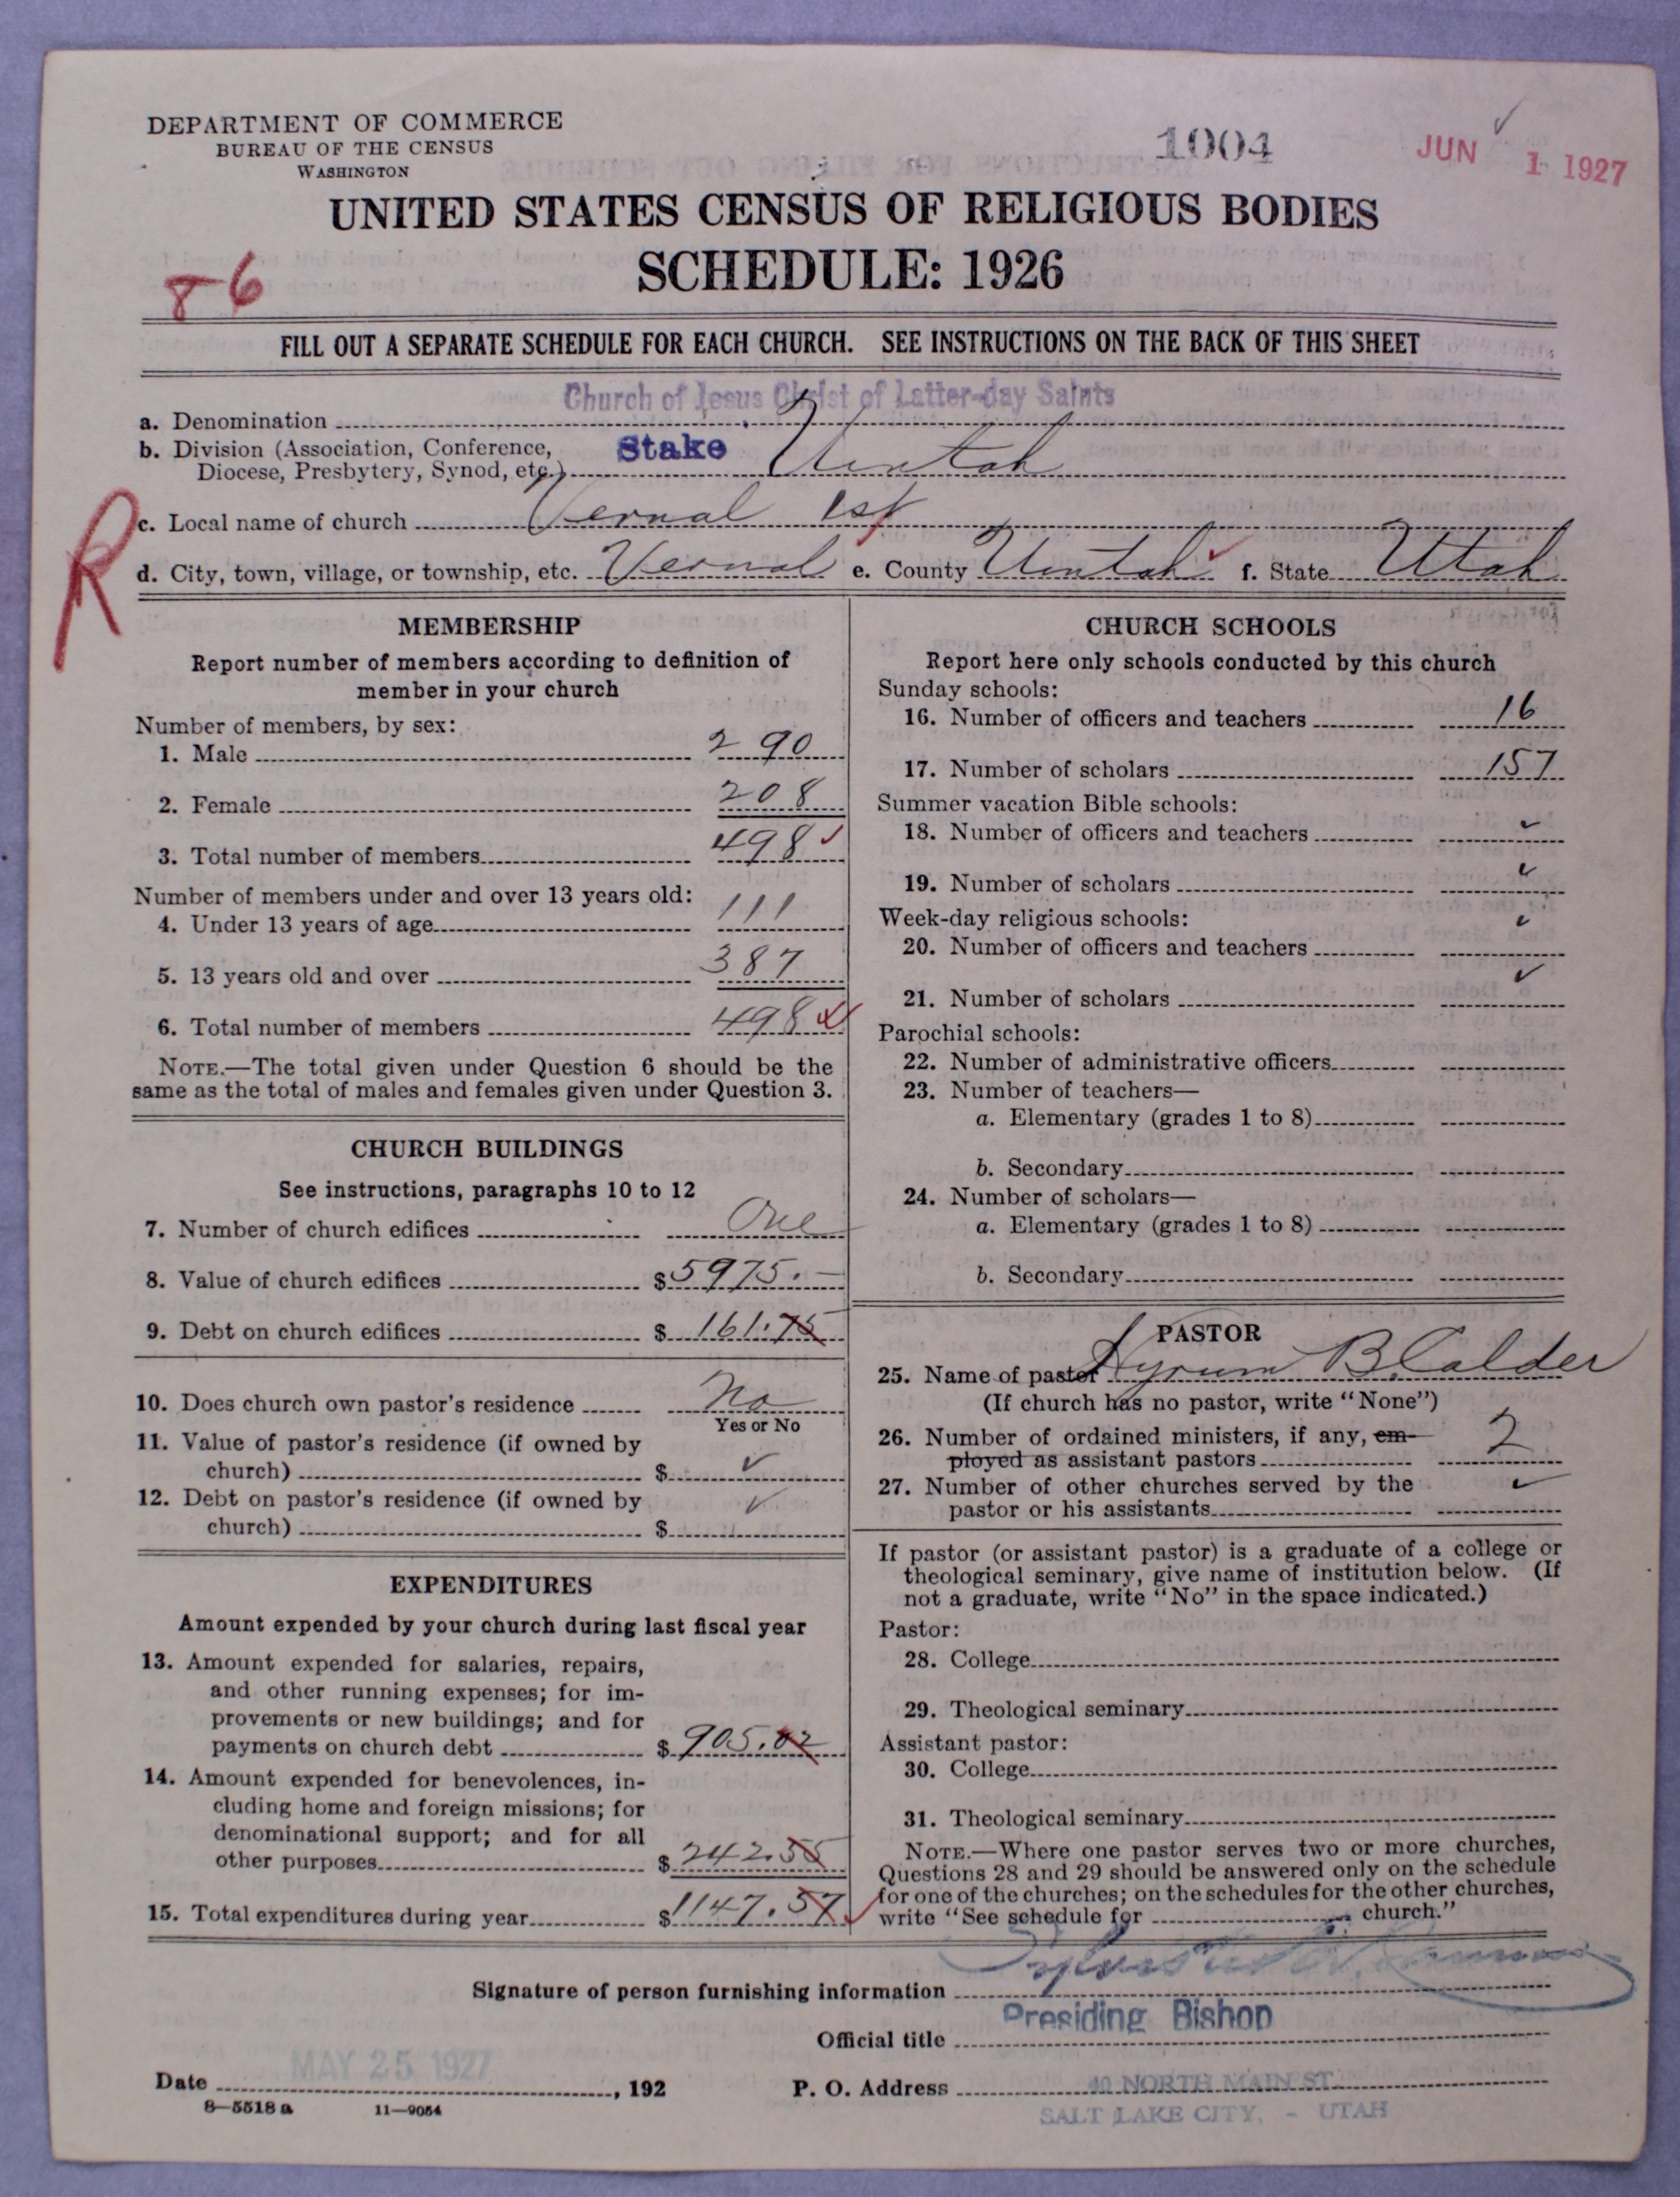 DEPARTMENT OF COMMERCE
BUREAU OF THE CENSUS
WASHINGTON
1004
JUN 1 1927
UNITED STATES CENSUS OF RELIGIOUS BODIES
SCHEDULE: 1926
86
FILL OUT A SEPARATE SCHEDULE FOR EACH CHURCH. SEE INSTRUCTIONS ON THE BACK OF THIS SHEET
a. Denomination Church of Jesus Christ of Latter-day Saints
b. Division (Association, Conference,
Diocese, Presbytery, Synod, etc.) Stake Uintah
R
c. Local name of church Vernal 1st
d. City, town, village, or township, etc. Vernal e. County Uintah f. State Utah
MEMBERSHIP
Report number of members according to definition of
member in your church
Number of members, by sex:
1. Male 290
2. Female 208
3. Total number of members 498
Number of members under and over 13 years old:
4. Under 13 years of age 111
5. 13 years old and over 387
6. Total number of members 498
NOTE.—The total given under Question 6 should be the
same as the total of males and females given under Question 3.
CHURCH BUILDINGS
See instructions, paragraphs 10 to 12
7. Number of church edifices One
8. Value of church edifices $5975.—
9. Debt on church edifices $161.75
10. Does church own pastor's residence No
Yes or No
11. Value of pastor's residence (if owned by
church) $ ✓
12. Debt on pastor's residence (if owned by
church) $ ✓
EXPENDITURES
Amount expended by your church during last fiscal year
13. Amount expended for salaries, repairs,
and other running expenses; for im-
provements or new buildings; and for
payments on church debt $905.02
14. Amount expended for benevolences, in-
cluding home and foreign missions; for
denominational support; and for all
other purposes $242.55
15. Total expenditures during year $1147.57
CHURCH SCHOOLS
Report here only schools conducted by this church
Sunday schools:
16. Number of officers and teachers 16
17. Number of scholars 157
Summer vacation Bible schools:
18. Number of officers and teachers ✓
19. Number of scholars ✓
Week-day religious schools:
20. Number of officers and teachers ✓
21. Number of scholars ✓
Parochial schools:
22. Number of administrative officers
23. Number of teachers—
a. Elementary (grades 1 to 8)
b. Secondary
24. Number of scholars—
a. Elementary (grades 1 to 8)
b. Secondary
PASTOR
25. Name of pastor Hyrum B. Calder
(If church has no pastor, write "None")
26. Number of ordained ministers, if any, em-
ployed as assistant pastors 2
27. Number of other churches served by the
pastor or his assistants ✓
If pastor (or assistant pastor) is a graduate of a college or
theological seminary, give name of institution below. (If
not a graduate, write "No" in the space indicated.)
Pastor:
28. College
29. Theological seminary
Assistant pastor:
30. College
31. Theological seminary
NOTE.—Where one pastor serves two or more churches,
Questions 28 and 29 should be answered only on the schedule
for one of the churches; on the schedules for the other churches,
write "See schedule for church."
Signature of person furnishing information
Official title Presiding Bishop
Date MAY 25 1927, 192
P. O. Address 40 NORTH MAIN ST.
SALT LAKE CITY, - UTAH
8—5518 a 11—9054